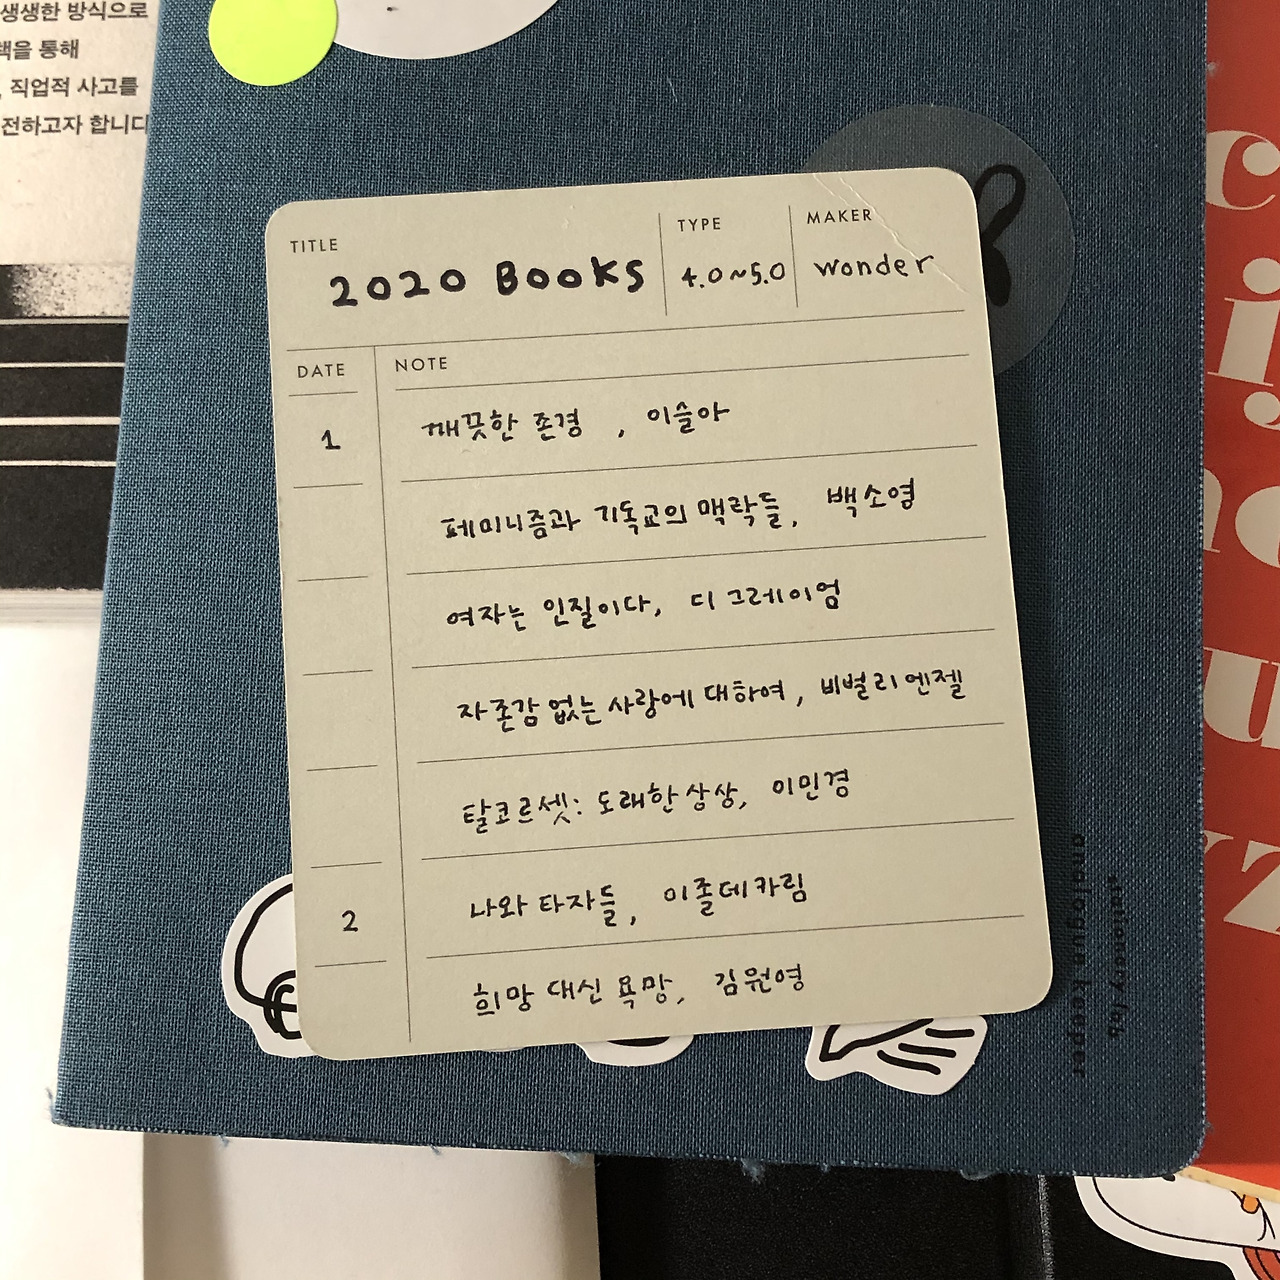 생생한 방식으로
책을 통해
, 직업적 사고를
전하고자 합니다
TITLE
2020 BOOKS
TYPE
4.0~5.0
MAKER
wonder
DATE
NOTE
1
깨끗한 존경 , 이슬아
페미니즘과 기독교의 맥락들, 백소영
여자는 인질이다, 디 그레이엄
자존감 없는 사랑에 대하여, 비벌리 엔젤
탈코르셋: 도래한 상상, 이민경
2
나와 타자들, 이졸데 카림
희망 대신 욕망, 김원영
analogue keeper